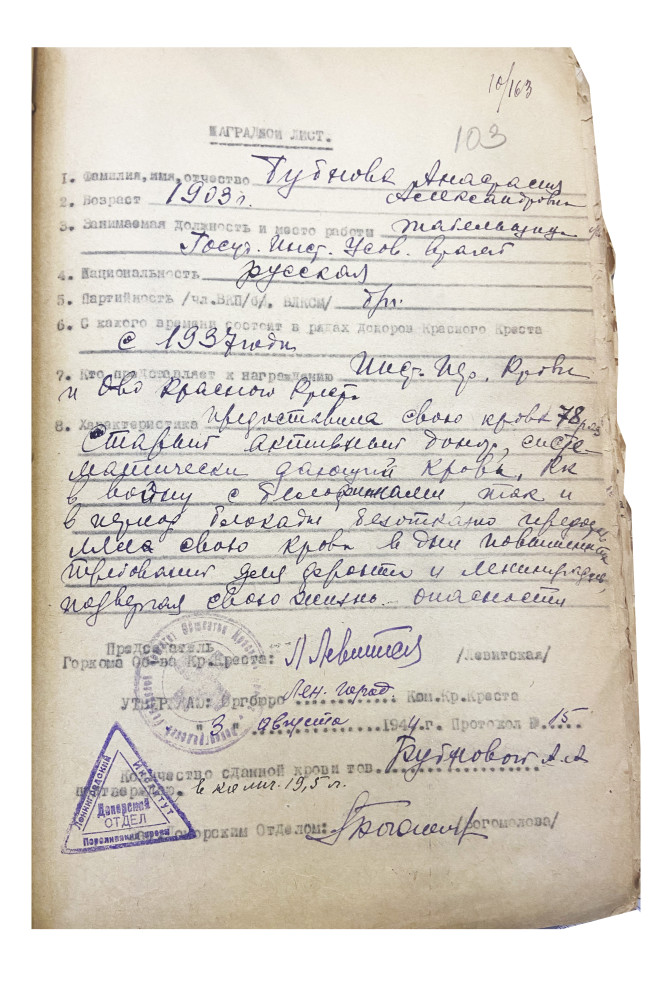 10/163
103
НАГРАДНОЙ ЛИСТ.
1. Фамилия, имя, отчество Бубнова Анастасия
Александровна
2. Возраст 1903 г.
3. Занимаемая должность и место работы
Госуд. Инст. Усов. Врачей
4. Национальность русская
5. Партийность /чл.ВКП/б/. ВЛКСМ/ б/п.
6. С какого времени состоит в рядах доноров Красного Креста
с 1937 года
7. Кто представляет к награждению Инст. Пер. Крови
и О-во Красного Крест.
8. Характеристика предоставила свою кровь 78 раз
Старый активный донор, систе-
матически дающий кровь, как
в войну с белофиннами, так и
в период блокады безотказно предостав-
ляла свою кровь в дни повышенных
требований для фронта и Ленинграда,
подвергая свою жизнь опасности
Председатель
Горкома Об-ва Кр.Креста: Л Левитская /Левитская/
УТВЕРЖДАЮ: Оргбюро Лен. город. Ком.Кр.Креста
"3" августа 1944 г. Протокол № 15
Количество сданной крови тов. Бубновой А. А
подтвержд. в колич. 19,5 л.
Донорским Отделом: /Богомолова/
Ленинградский Институт
Переливания крови
Донорский
ОТДЕЛ